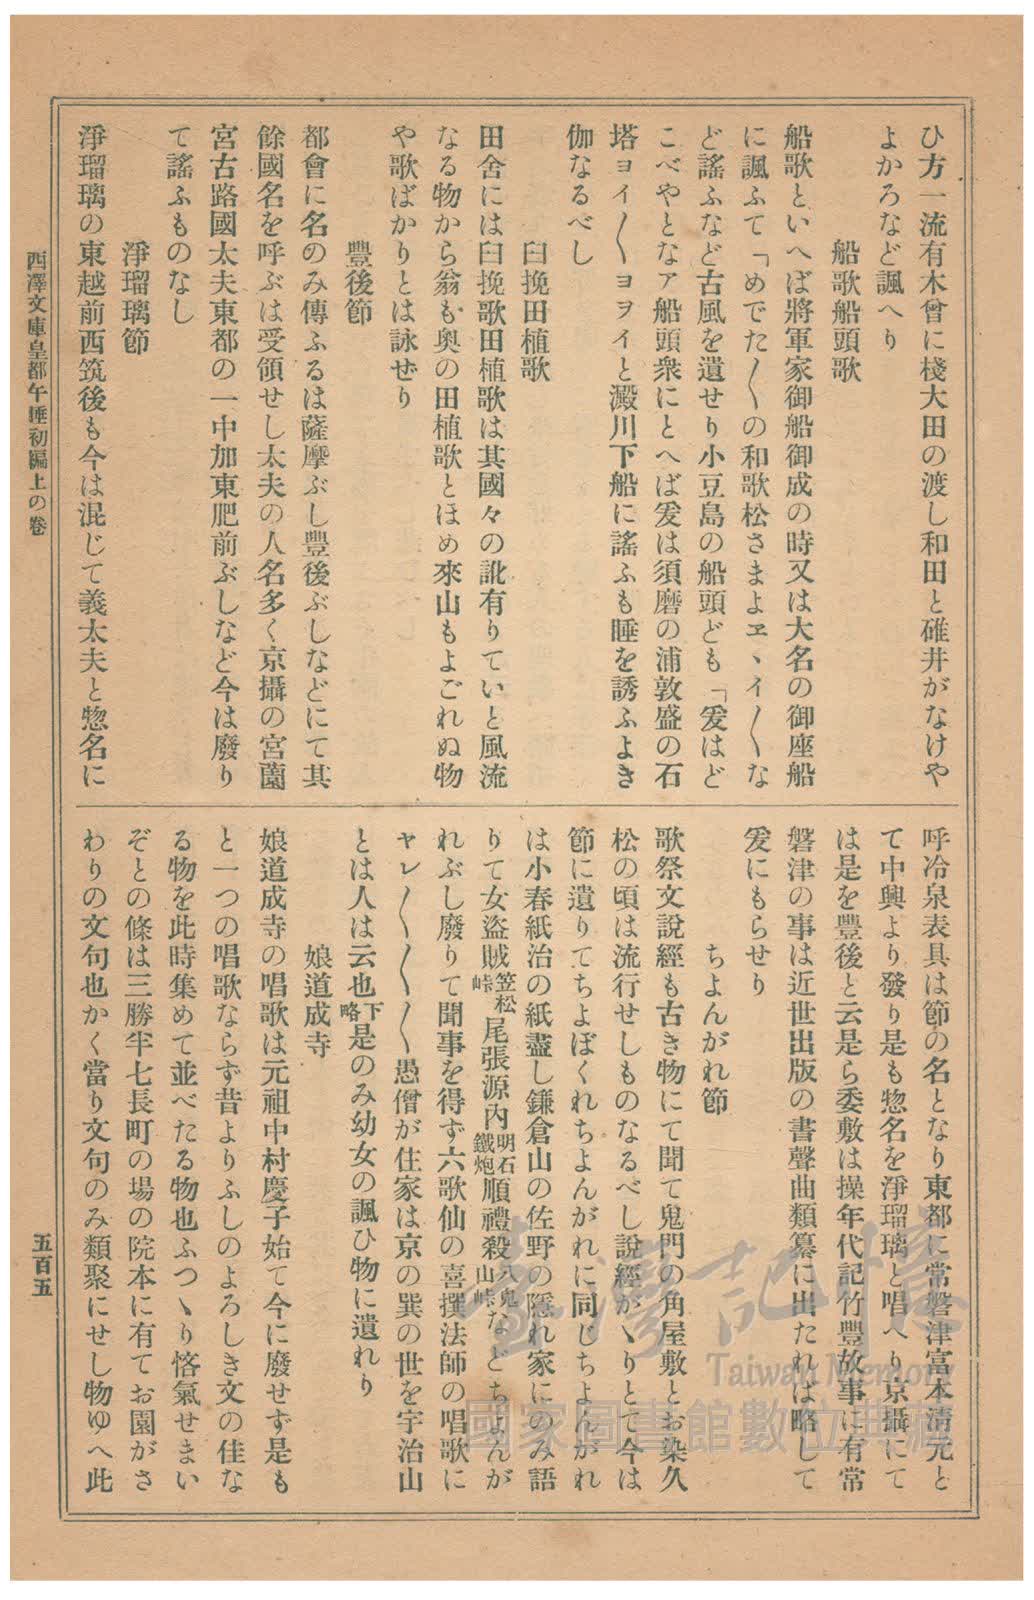 ひ方一流有木曾に棧大田の渡し和田と碓井がなけや
よかろなど諷へり
船歌船頭歌
船歌といへば將軍家御船御成の時又は大名の御座船
に諷ふて「めでた〱の和歌松さまよヱヽイ〱な
ど謠ふなど古風を遺せり小豆島の船頭ども「爰はど
こべやとなァ船頭衆にとへば爰は須磨の浦敦盛の石
塔ヨイ〱ヨヲイと澱川下船に謠ふも睡を誘ふよき
伽なるべし
臼挽田植歌
田舍には臼挽歌田植歌は其國々の訛有りていと風流
なる物から翁も奥の田植歌とほめ來山もよごれぬ物
や歌ばかりとは詠ぜり
豐後節
都會に名のみ傳ふるは薩摩ぶし豐後ぶしなどにて其
餘國名を呼ぶは受領せし太夫の人名多く京攝の宮薗
宮古路國太夫東都の一中加東肥前ぶしなど今は廢り
て謠ふものなし
淨瑠璃節
淨瑠璃の東越前西筑後も今は混じて義太夫と惣名に
呼冷泉表具は節の名となり東都に常磐津富本淸元と
て中興より發り是も惣名を淨瑠璃と唱へり京攝にて
は是を豐後と云是ら委敷は操年代記竹豐故事に有常
磐津の事は近世出版の書聲曲類纂に出たれば略して
爰にもらせり
ちよんがれ節
歌祭文說經も古き物にて聞て鬼門の角屋敷とお染久
松の頃は流行せしものなるべし說經がヽりとて今は
節に遺りてちよぼくれちよんがれに同じちよんがれ
は小春紙治の紙盡し鎌倉山の佐野の隱れ家にのみ語
りて女盜賊笠松峠尾張源內明石鐵炮順禮殺八鬼山峠などちよんが
れぶし廢りて聞事を得ず六歌仙の喜撰法師の唱歌に
ヤレ〱〱〱愚僧が住家は京の巽の世を宇治山
とは人は云也下略是のみ幼女の諷ひ物に遺れり
娘道成寺
娘道成寺の唱歌は元祖中村慶子始て今に廢せず是も
と一つの唱歌ならず昔よりふしのよろしき文の佳な
る物を此時集めて並べたる物也ふつヽり悋氣せまい
ぞとの條は三勝半七長町の場の院本に有てお園がさ
わりの文句也かく當り文句のみ類聚にせし物ゆへ此
西澤文庫皇都午睡初編上の卷
五百五
臺灣記憶
Taiwan Memory
國家圖書館數位典藏